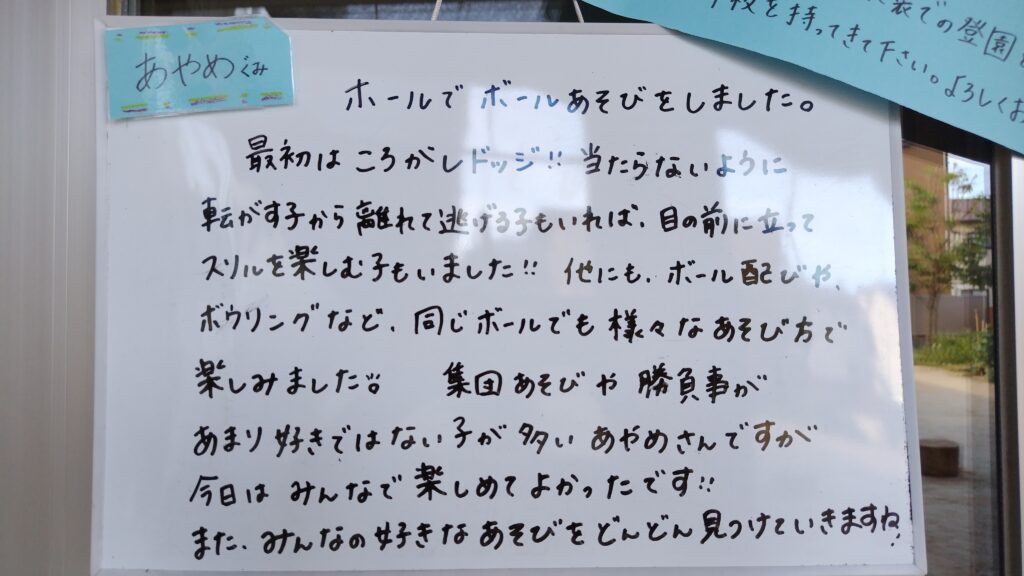 あやめぐみ
ホールでボールあそびをしました。
最初はころがしドッジ!! 当たらないように
転がす子から離れて逃げる子もいれば、目の前に立って
スリルを楽しむ子もいました!! 他にも、ボール配びや、
ボウリングなど、同じボールでも様々なあそび方で
楽しみました。 集団あそびや勝負事が
あまり好きではない子が多いあやめさんですが
今日はみんなで楽しめてよかったです!!
また、みんなの好きなあそびをどんどん見つけていきますね!
での登園
を持ってきて下さい。よろしくお